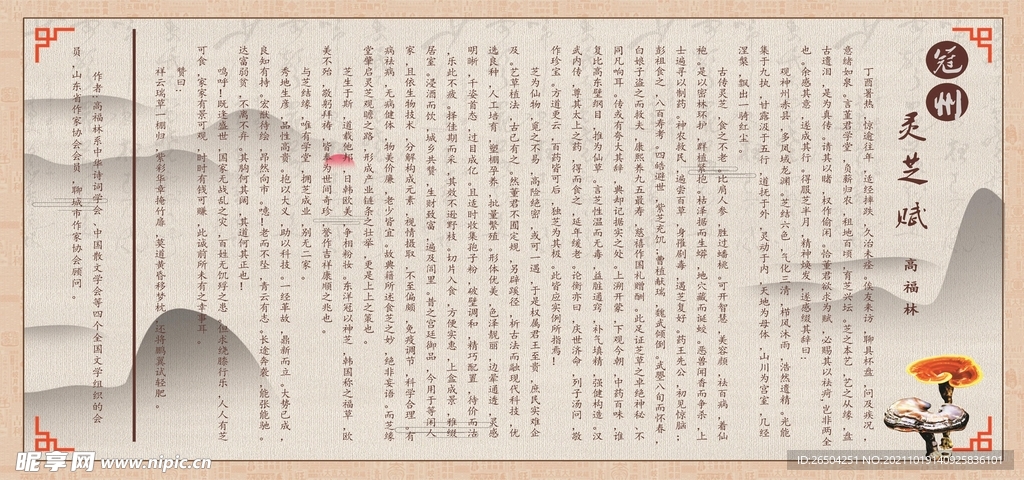 冠州
灵芝赋
高福林
丁酉暑热，惊逾往年，适经摔跌，久治未痊。侠友来访，聊具杯盘，问及疾况，
意绪如泉。言董君学堂，负薪归农，租地百顷，育芝兴坛。芝之本艺，艺之从缘，盘
古遗泪，是为真传。请其以睹，权作偷闲。恰董君欲求为赋，必赐其以祛疴；岂非两全
也。余感其意，遂成其行，得服芝半月，精神焕发，遂感缀其辞曰：
观神州赤县，多凤域龙渊。芝结六色，气化三清，栉风沐雨，浩然遗精。光能
集于九执，甘露汲于五行，道抚于外，灵动于内，天地为母体，山川为宫室，几经
涅槃，飘出一骑红尘。
古传灵芝，食之不老，比肩人参，胜过蟠桃。可开智慧，美容颜，祛百病，着仙
袍。是以密林环护，群植紫抱。枯泽据而生蟒，地穴藏而诞蛟。恶兽闻香而争杀，上
士遍寻以制药，神农救民，遍尝百草，身摧剧毒，遇芝复好。药王先公，初见惊脑；
彭祖食之，八百寿考。四皓避世，紫芝充饥；曹植献瑞，魏武倾倒。武曌八旬而怀春，
白娘子盗之而救夫，康熙养九五最寿，慈禧作国礼赠酬。此足证芝草之卓绝神秘，不
同凡响耳。传或有夸大其辞，典却记据实之处。上溯开蒙，下观今朝，中药百味，谁
复比高？东壁纲目，推为仙草。言芝性温而无毒，益脏通窍，补气填精，强健构造。汉
武内传，尊其太上之药，得而食之，延年缓老。论衡亦曰，庆世济命，列子汤问，敬
作珍宝。方道更云，百药皆可后，独芝为其极。此皆应实例所指焉！
芝为仙物，觅之不易，高险绝密，或可一遇，于是权属君王至贵，庶民实难企
及。艺草植法，古已有之，然董君不囿定规，另辟蹊径，析古法而融现代科技，优
选良种，人工培育，塑棚孕养，批量繁殖。形体优美，色泽靓丽，边晕通透，灵感
明晰，千姿百态，过目成忆。且适时收集孢子粉，破壁调和，精巧配置，待价而沽
，乐此不疲。择佳期而采，其效不逊野枝。切片入食，方便实惠，上盆成景，雅缀
居室。浸酒而饮，城乡共赞，生财致富，遍及闾里。昔之宫廷御品，今用于等闲人
家，且依生物技术，分解构成元素，视情摄取，不至偏颇，免疫调节，科学合理。有
病祛病，无病健体，物美价廉，老少皆宜。故典籍所述食芝之妙，绝非妄语。而芝缘
堂肇启灵芝观瞻之路，形成产业链条之壮举，更是上上之策也。
芝生于斯，道载他邦，日韩欧美，争相粉妆。东洋冠以神芝，韩国称之福草，欧
美不殆，敬躬拜祷，皆奉为世间奇珍，誉作吉祥康顺之兆也。
与芝结缘，唯有学堂，拥芝成业，别无二家。
秀地生彦，品性高贵。抱以大义，助以科技。一经革故，鼎新而立。大势已成，
良知有持。宏猷待绘，昂然向市。噫！老而不坠，青云有志。长途奔袭，能张能驰。
达富弱贫，不离不弃。其胸何其阔，其道何其正也！
呜呼！既逢盛世，国家无战乱之灾，百姓无饥殍之患，但求绕膝行乐，人人有芝
可食，家家有景可观，时时有钱可赚，此诚前所未有之幸事耳。
赞曰：
祥云瑞草一棚归，紫彩华章掩竹扉，莫道黄昏移梦枕，还将鹏翼试轻肥。
作者：高福林系中华诗词学会、中国散文学会等四个全国文学组织的会
员，山东省作家协会会员，聊城市作家协会顾问。
昵享网 www.nipic.cn
ID:26504251 NO:20211019140925836101